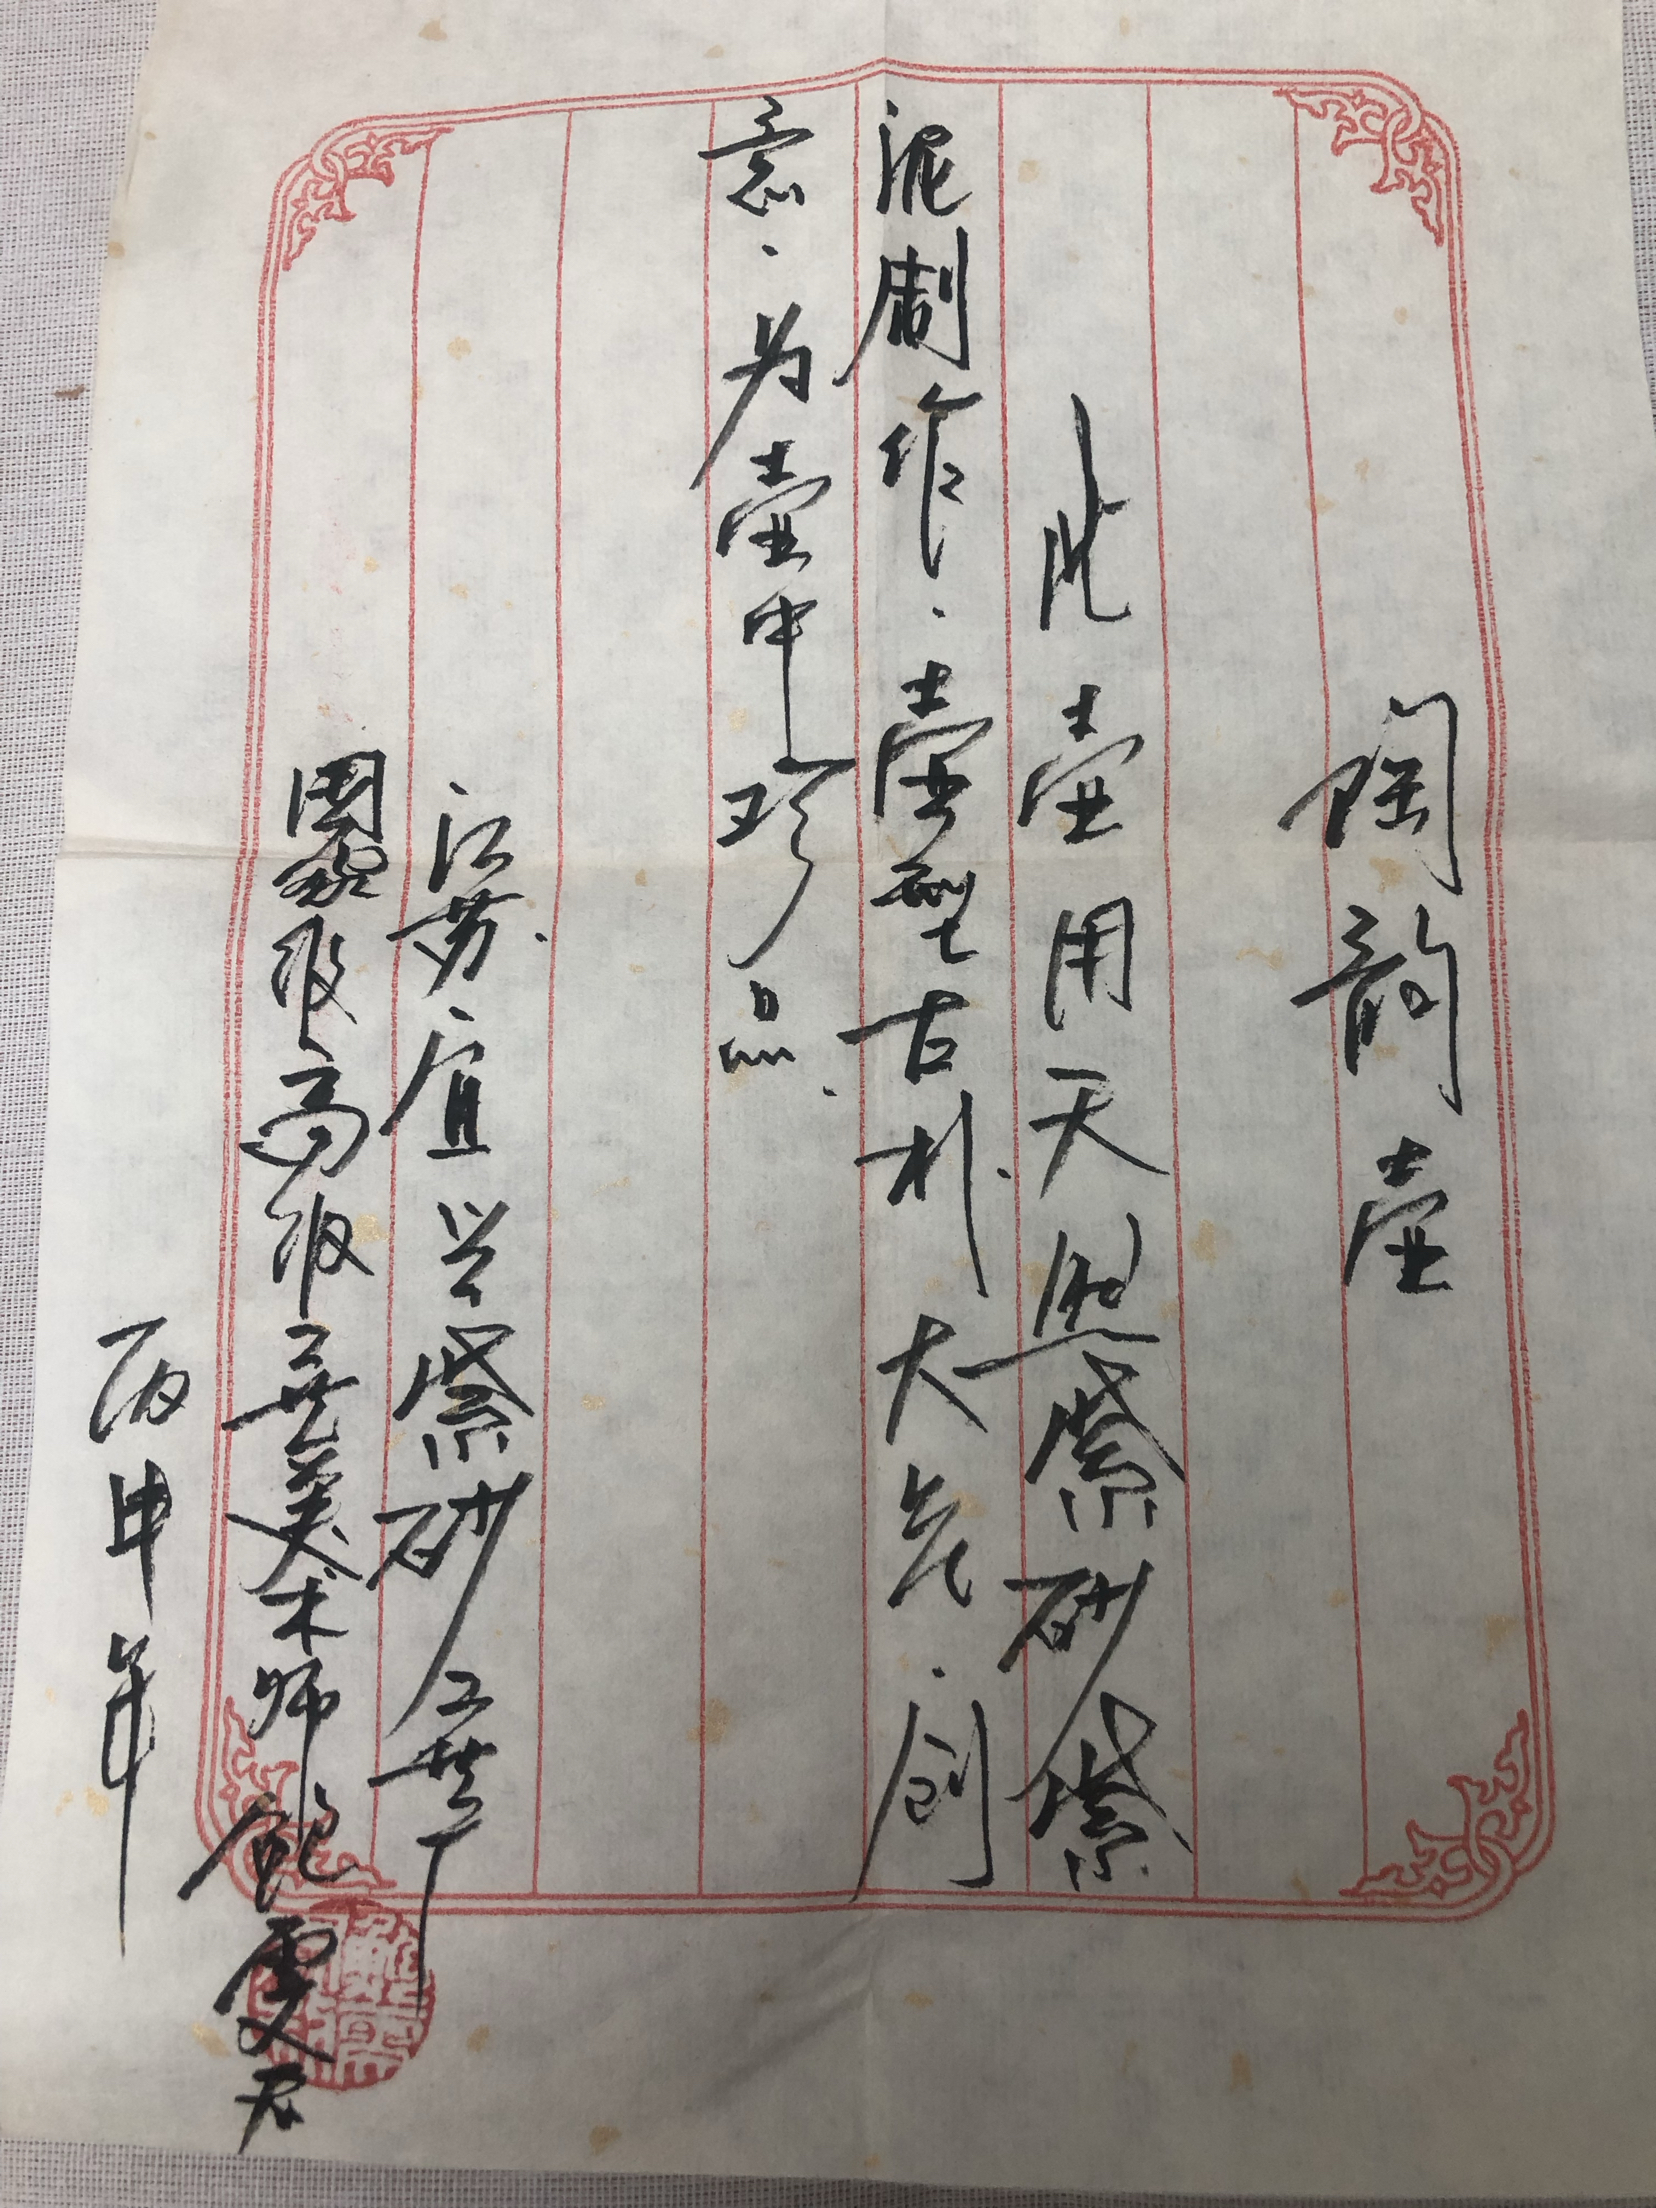 陶韵壶
此壶用天然紫砂紫
泥制作.壶型古朴大气.创
意.为壶中珍品.
江苏.宜兴紫砂工艺厂
国家级高级工艺美术师鲍雯
丙申年